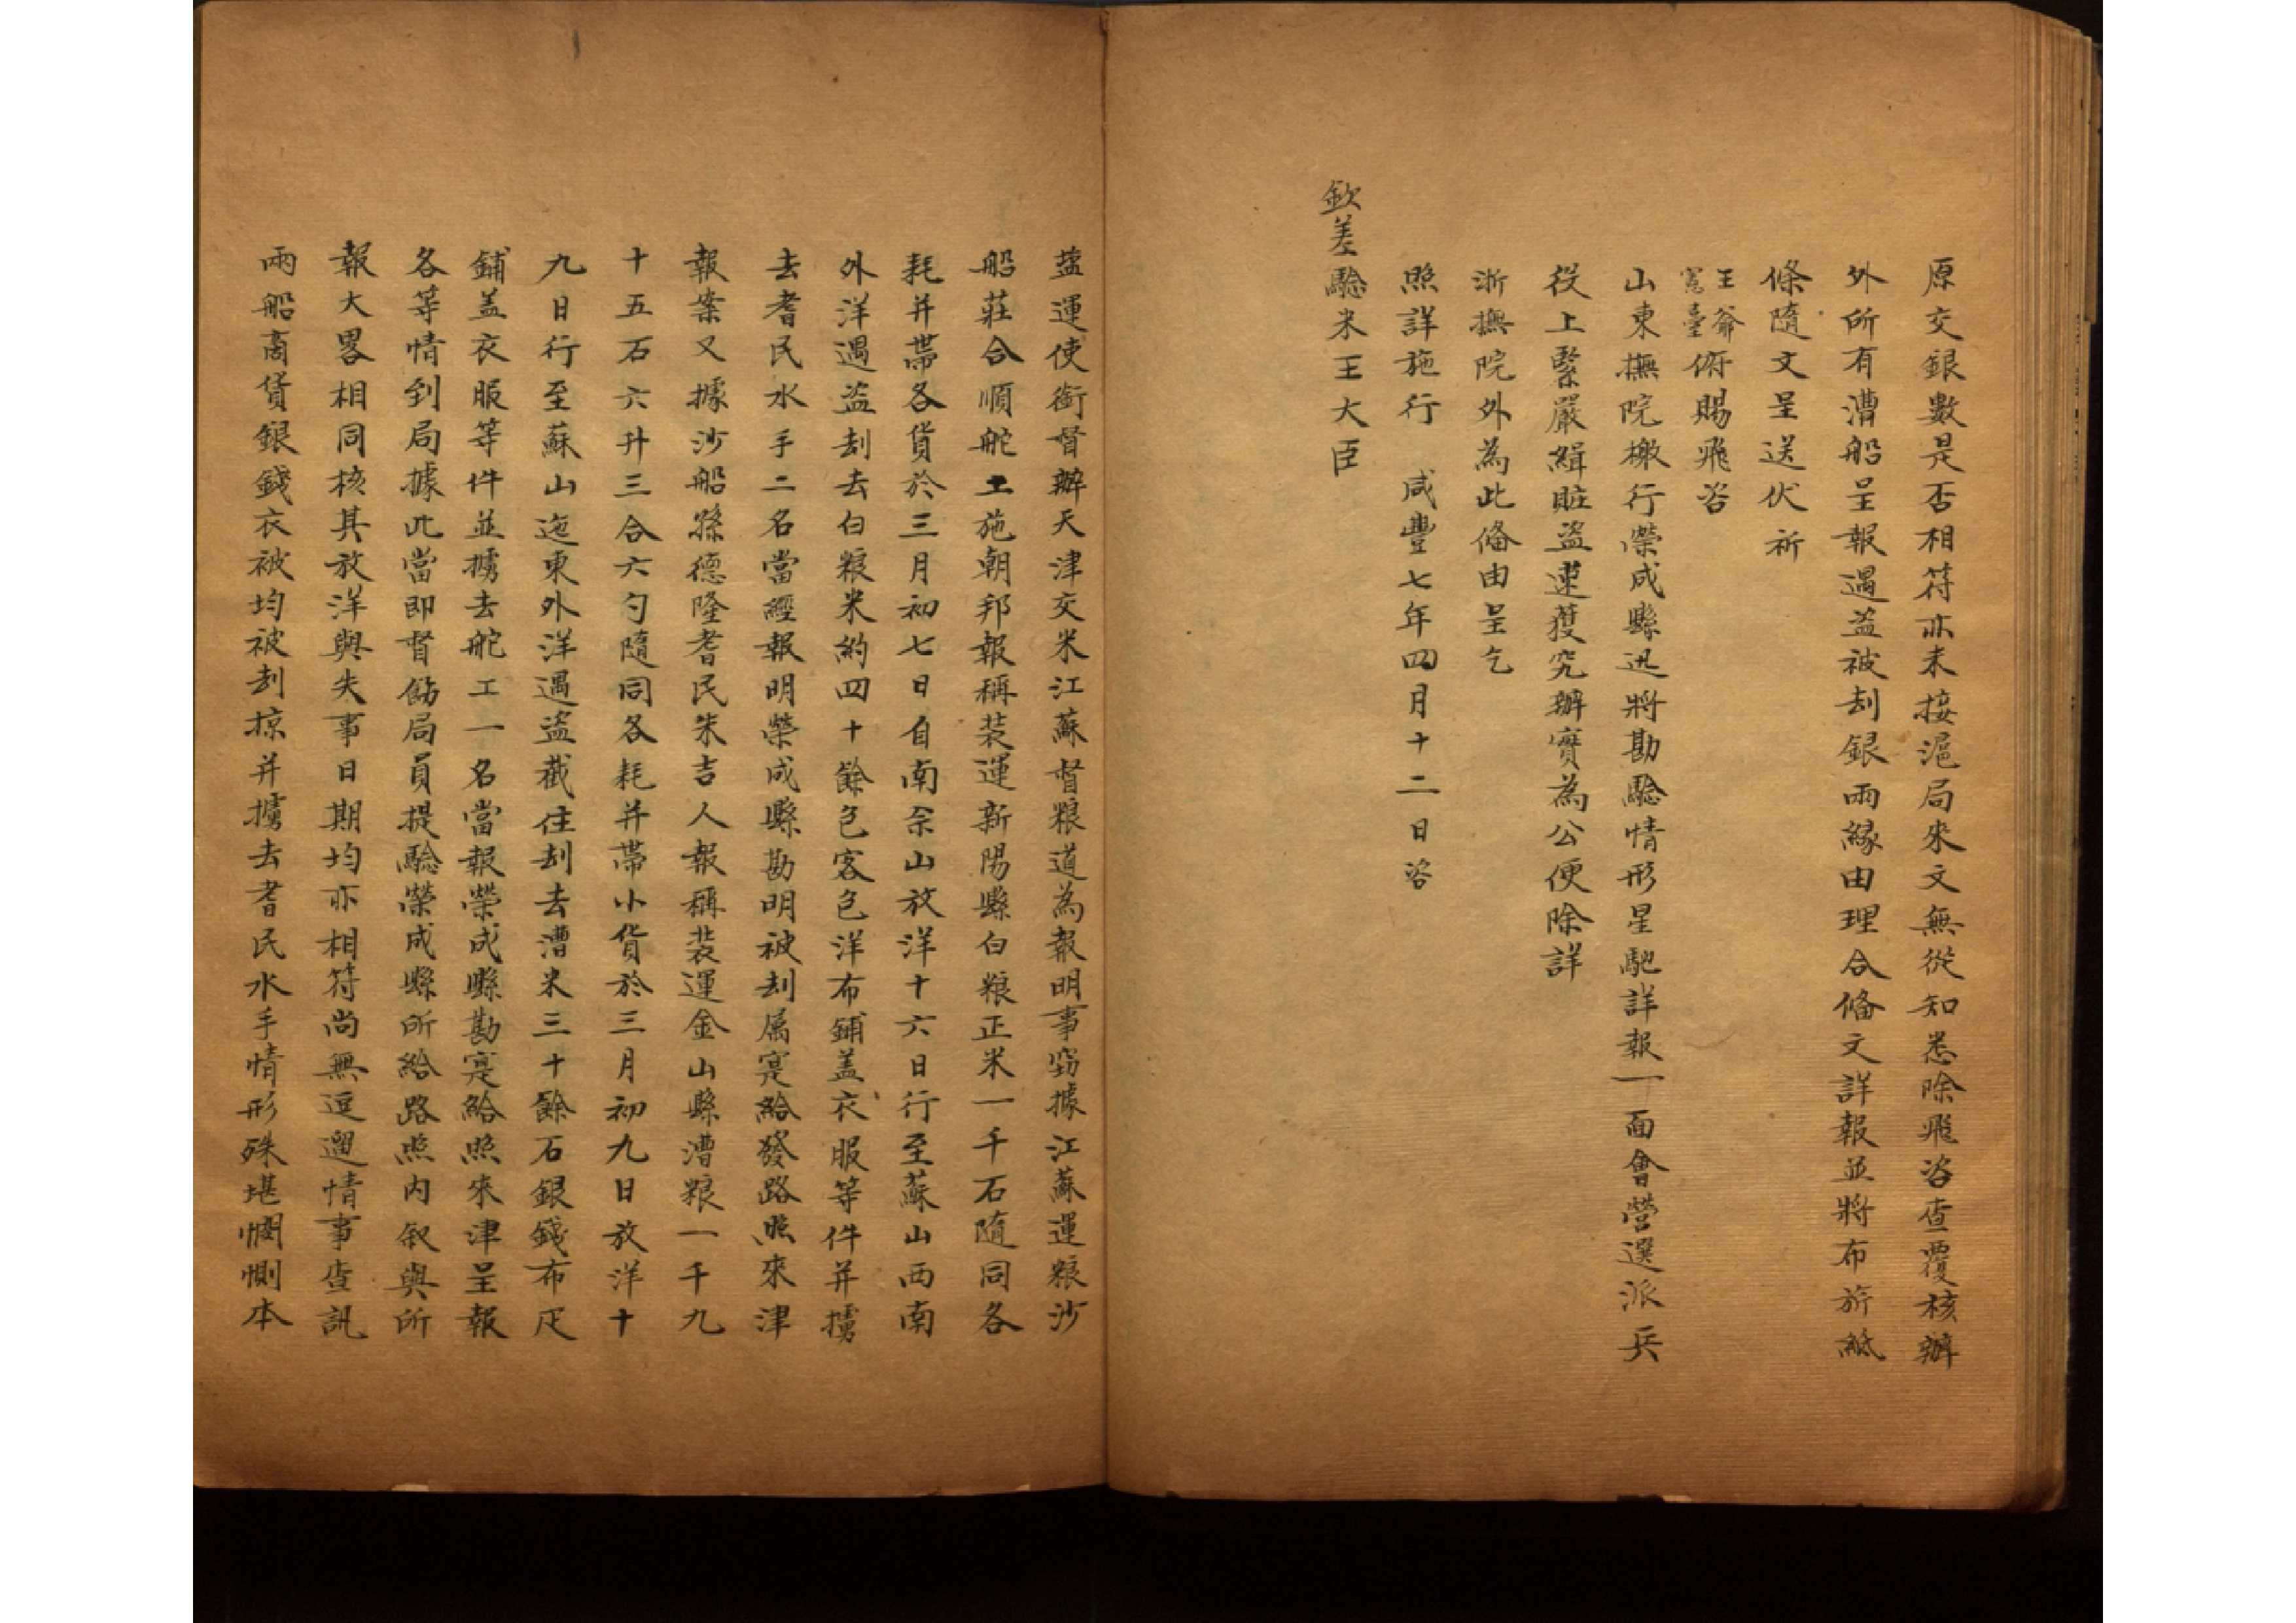 原交銀數是否相符亦未接滬局來文無從知悉除飛咨查覆核辦
外所有漕船呈報遇盜被刦銀兩緣由理合俻文詳報並將布旂紙
條隨文呈送伏祈
王爺
憲臺俯賜飛咨
山東撫院檄行榮成縣迅將勘騐情形星馳詳報一面會營選派兵
役上緊嚴緝賍盜速獲究辦實為公便除詳
浙撫院外為此俻由呈乞
照詳施行 咸豐七年四月十二日咨
欽差騐米王大臣
蓝運使銜督辦天津交米江蘇督粮道為報明事窃據江蘇運粮沙
船莊合順舵工施朝邦報稱装運新陽縣白粮正米一千石隨同各
耗并帶各貨於三月初七日自南佘山放洋十六日行至蘇山西南
外洋遇盜刦去白粮米約四十餘包客包洋布鋪盖衣服等件并擄
去耆民水手二名當經報明榮成縣勘明被刦属寔給發路照來津
報案又據沙船孫德隆耆民朱吉人報稱装運金山縣漕粮一千九
十五石六升三合六勺隨同各耗并帶小貨於三月初九日放洋十
九日行至蘇山迤東外洋遇盜截住刦去漕米三十餘石銀錢布疋
鋪盖衣服等件並擄去舵工一名當報榮成縣勘寔給照來津呈報
各等情到局據此當即督飭局員提騐榮成縣所給路照内叙與所
報大畧相同核其放洋與失事日期均亦相符尚無逗遛情事查訊
兩船商貨銀錢衣被均被刦掠并擄去耆民水手情形殊堪憫惻本